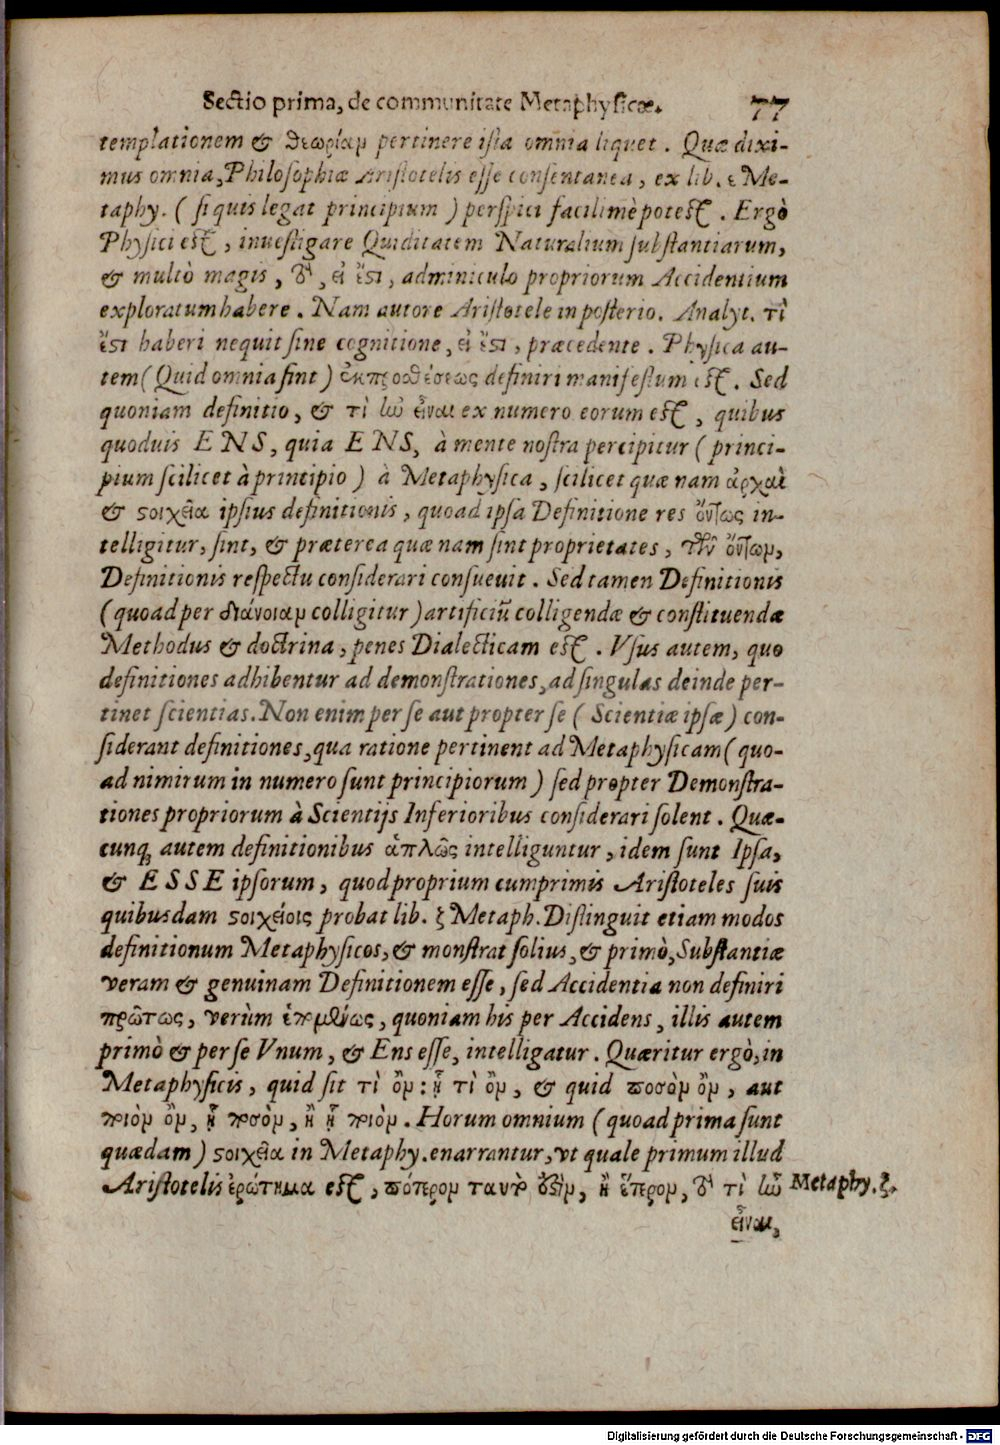 Sectio prima, de communitate Metaphysicæ. 77
templationem & θεωρίαμ pertinere ista omnia liquet. Quæ dixi-
mus omnia, Philosophiæ Aristotelis esse consentanea, ex lib. ε Me-
taphy. ( si quis legat principium ) perspici facilimè potest. Ergò
Physici est, inuestigare Quiditatem Naturalium substantiarum,
& multò magis, τὸ, εἰ ἔστι, adminiculo propriorum Accidentium
exploratum habere. Nam autore Aristotele in posterio. Analyt. τὶ
ἔστι haberi nequit sine cognitione, εἰ ἔστι, præcedente. Physica au-
tem ( Quid omnia sint ) ἐκπροσθέσεως definiri manifestum est. Sed
quoniam definitio, & τὶ ἦν εἶναι ex numero eorum est, quibus
quoduis ENS, quia ENS, à mente nostra percipitur ( princi-
pium scilicet à principio ) à Metaphysica, scilicet quæ nam ἀρχαὶ
& στοιχεῖα ipsius definitionis, quoad ipsa Definitione res ὄντως in-
telligitur, sint, & præterea quæ nam sint proprietates, τῶν ὄντωμ,
Definitionis respectu considerari consueuit. Sed tamen Definitionis
( quoad per διάνοιαμ colligitur ) artificiū colligendæ & constituendæ
Methodus & doctrina, penes Dialecticam est. Vsus autem, quo
definitiones adhibentur ad demonstrationes, ad singulas deinde per-
tinet scientias. Non enim per se aut propter se ( Scientiæ ipsæ ) con-
siderant definitiones, qua ratione pertinent ad Metaphysicam ( quo-
ad nimirum in numero sunt principiorum ) sed propter Demonstra-
tiones propriorum à Scientijs Inferioribus considerari solent. Quæ-
cunq; autem definitionibus ἁπλῶς intelliguntur, idem sunt Ipsa,
& ESSE ipsorum, quod proprium cumprimis Aristoteles suis
quibusdam στοιχείοις probat lib. ξ Metaph. Distinguit etiam modos
definitionum Metaphysicos, & monstrat solius, & primò, Substantiæ
veram & genuinam Definitionem esse, sed Accidentia non definiri
πρῶτως, verùm ἑπομένως, quoniam his per Accidens, illis autem
primò & per se Vnum, & Ens esse, intelligatur. Quæritur ergò, in
Metaphysicis, quid sit τὶ ὂμ: ᾗ τὶ ὂμ, & quid ποσὸμ ὂμ, aut
ποιὸμ ὂμ, ᾗ ποσὸμ, ἢ ᾗ ποιὸμ. Horum omnium ( quoad prima sunt
quædam ) στοιχεῖα in Metaphy. enarrantur, vt quale primum illud
Aristotelis ἐρώτημα est, πότερομ ταυτὸ ὅϐιμ, ἢ ἕτερομ, τὸ τὶ ἦν Metaphy. ξ.
εἶναι,
Digitalisierung gefördert durch die Deutsche Forschungsgemeinschaft - DFG